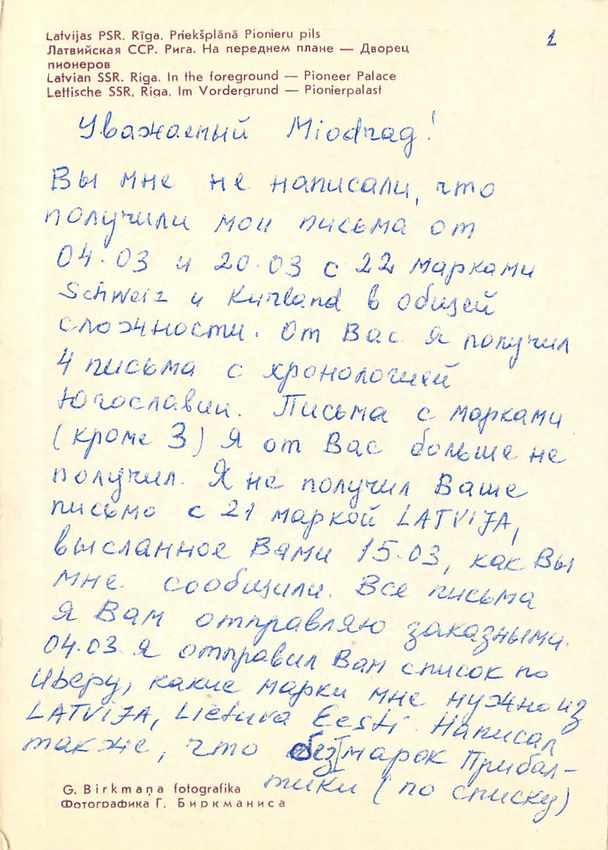 Latvijas PSR. Rīga. Priekšplānā Pionieru pils
Латвийская ССР. Рига. На переднем плане — Дворец
пионеров
Latvian SSR. Riga. In the foreground — Pioneer Palace
Lettische SSR. Riga. Im Vordergrund — Pionierpalast
1
Уважаемый Miodrag!
Вы мне не написали, что
получили мои письма от
04.03 и 20.03 с 22 марками
Schweiz и Kurland в общей
сложности. От Вас я получил
4 письма с хронологией
Югославии. Письма с марками
(кроме 3) я от Вас больше не
получил. Я не получил Ваше
письмо с 21 маркой LATVIJA,
высланное Вами 15.03, как Вы
мне сообщили. Все письма
я Вам отправляю заказными.
04.03 я отправил Вам список по
Иверу, какие марки мне нужно из
LATVIJA, Lietuva Eesti. Написал
также, что без марок Прибал-
тики (по списку)
G. Birkmaņa fotografika
Фотографика Г. Биркманиса